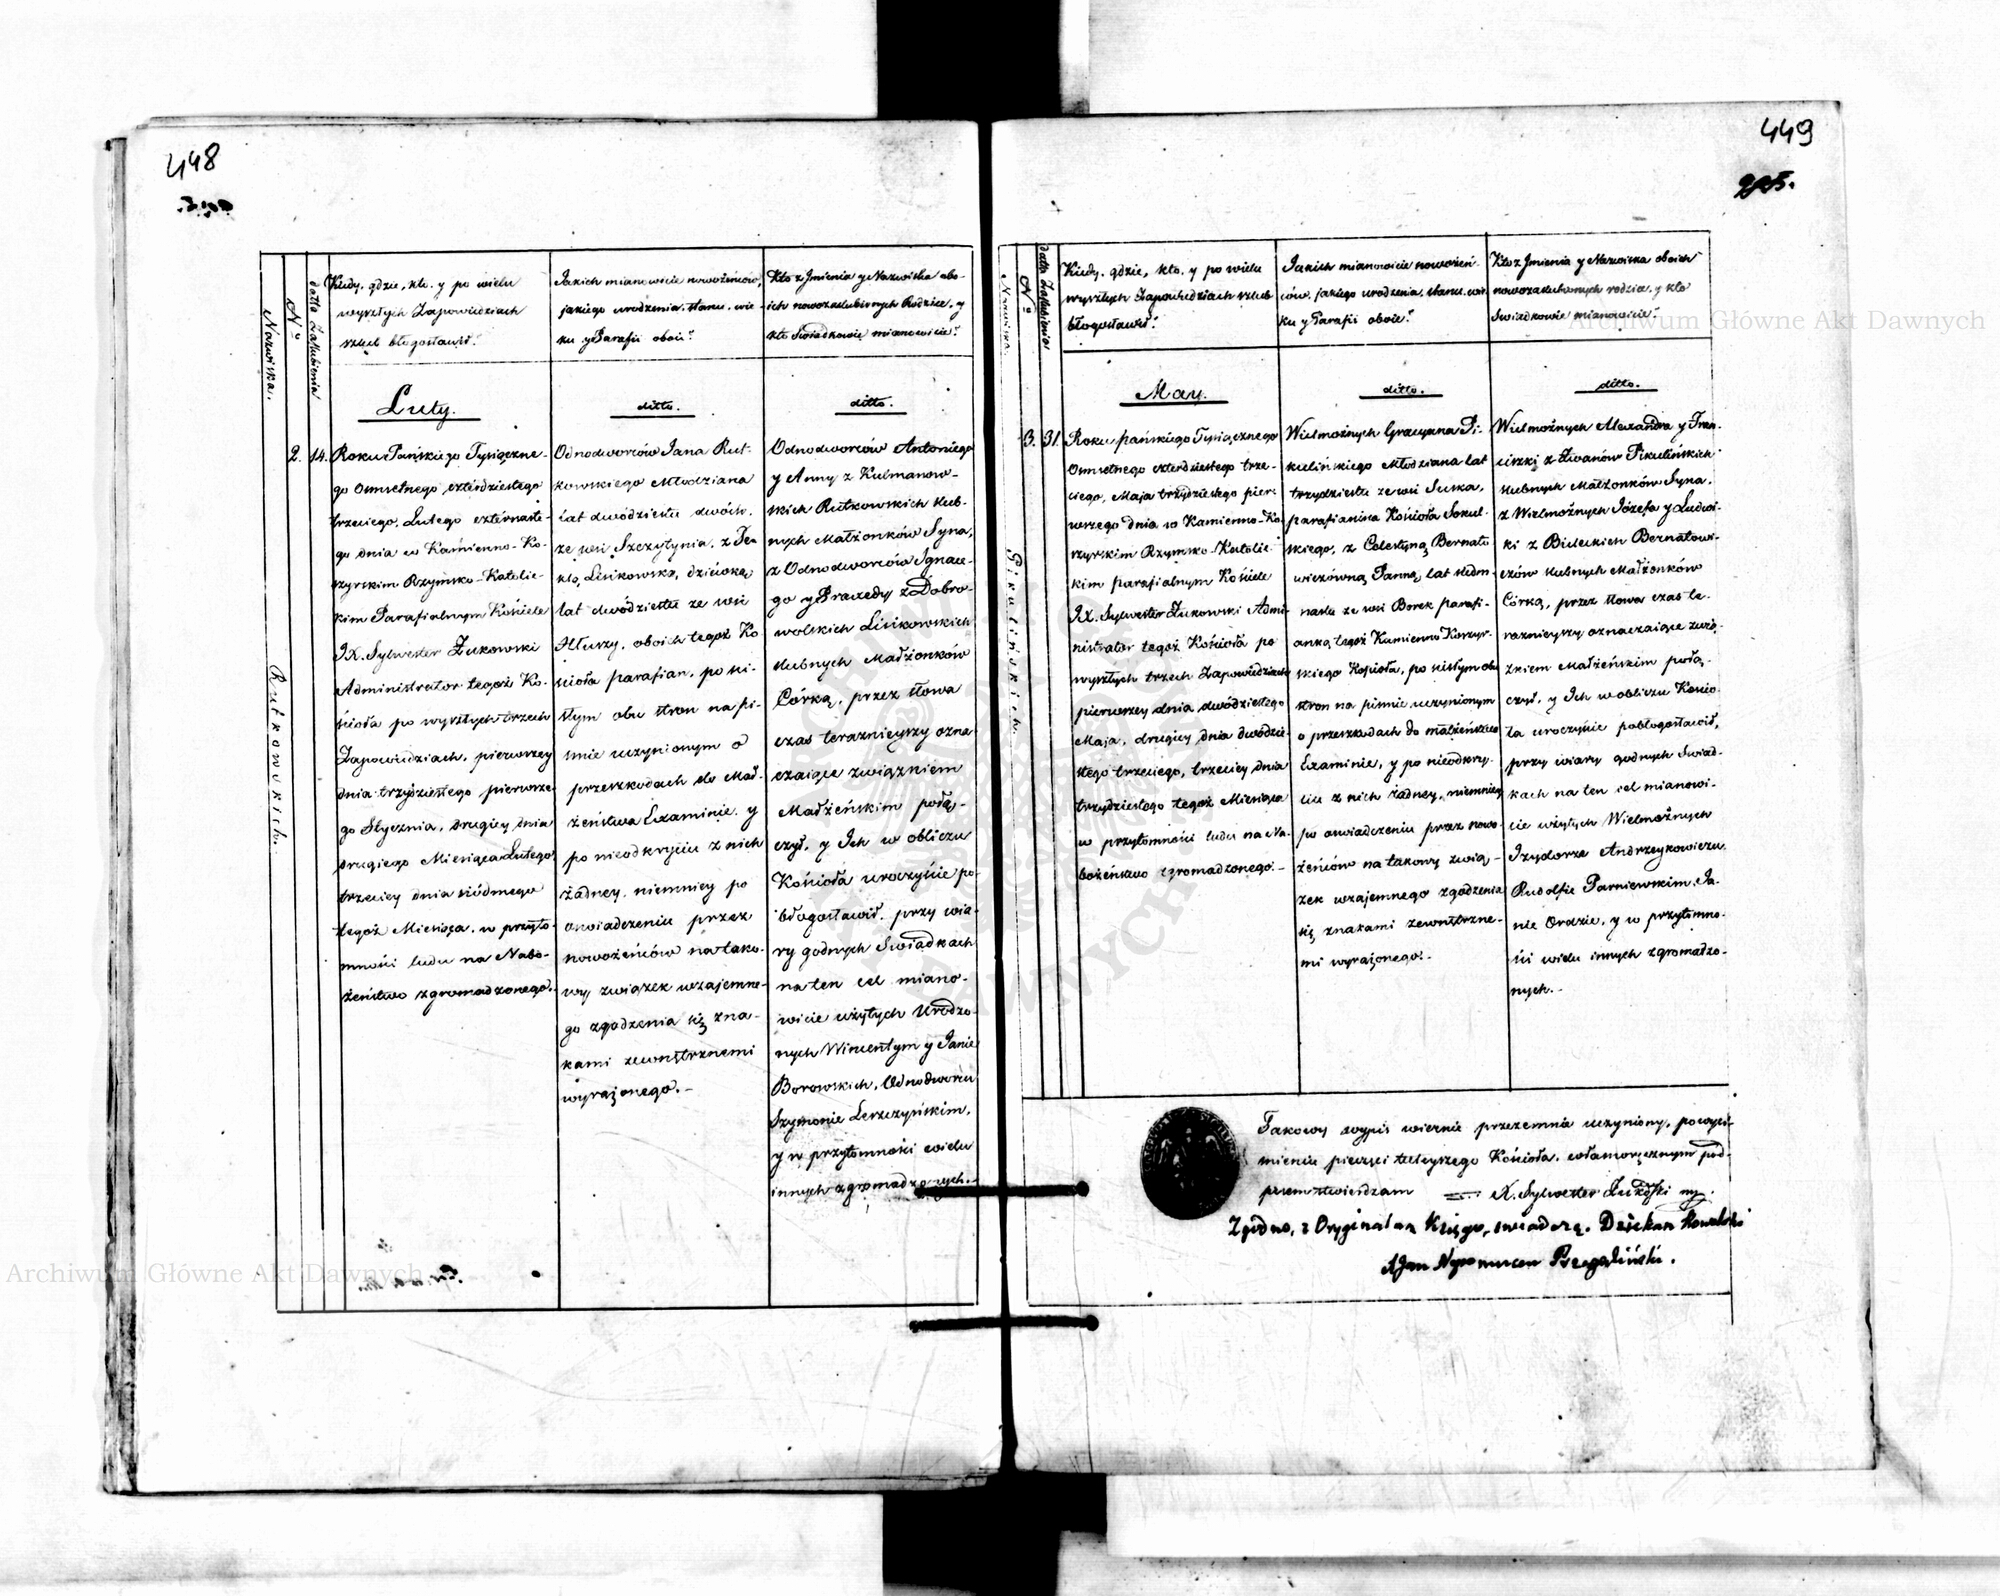 448
449
Nazwiska.
No
datta Zaślubienia
Kiedy, gdzie, kto, y po wielu
wyszłych Zapowiedziach
szlub błogosławił?
Jakich mianowicie nowożeńców,
jakiego urodzenia, stanu, wie-
ku y Parafii oboie?
Kto z Jmienia y Nazwiska obo-
ich nowozaslubionych Rodzice, y
kto Swiadkowie mianowicie?
Luty.
ditto.
ditto.
Rutkowskich.
2. 14.
Roku Pańskiego Tysiączne-
go osmsetnego czterdziestego
trzeciego, Lutego czternaste-
go dnia w Kamienno-Ko-
szyrskim Rzymsko-Katolic-
kim Parafialnym Kościele
JX. Sylwester Żukowski
Administrator tegoż Ko-
ścioła po wyszłych trzech
Zapowiedziach, pierwszey
dnia trzydziestego pierwsze-
go Stycznia, drugiey dnia
drugiego Miesiąca Lutego,
trzeciey dnia siódmego
tegoż Miesiąca, w przyto-
mności ludu na Nabo-
żeństwo zgromadzonego.
Odnodworców Jana Rut-
kowskiego Młodziana
lat dwódziestu dwóch,
ze wsi Szczytynia, z Te-
klą Lisikowską, dziewką
lat dwódziestu ze wsi
Hłuszy, oboich tegoż Ko-
ścioła parafian, po ści-
słym obu stron na pi-
śmie uczynionym o
przeszkodach do Mał-
żeństwa Examinie, y
po nieodkryciu z nich
żadney, niemniey po
oswiadczeniu przez
nowożeńców na tako-
wy związek wzajemne-
go zgodzenia się zna-
kami zewnętrznemi
wyrażonego.-
Odnodworców Antoniego
y Anny z Kulmanow-
skich Rutkowskich slub-
nych Małżonków Syna,
z Odnodworców Ignace-
go y Praxedy z Dobro-
wolskich Lisikowskich
slubnych Małżonków
Córką, przez słowa
czas teraznieyszy ozna-
czaiące związkiem
Małżeńskim połą-
czył, y Ich w obliczu
Kościoła uroczyście po-
błogosławił, przy wia-
ry godnych Swiadkach
na ten cel miano-
wicie użytych Urodzo-
nych Wincentym y Janie
Borowskich, Odnodworcu
Szymonie Leszczyńskim,
y w przytomności wielu
innych zgromadzonych.-
Nazwiska
No
datta Zaślubienia
Kiedy, gdzie, kto, y po wielu
wyszłych Zapowiedziach szlub
błogosławił?
Jakich mianowicie nowożeń-
ców, jakiego urodzenia, stanu, wie-
ku y Parafii oboie?
Kto z Jmienia y Nazwiska oboich
nowozaslubionych rodzice, y kto
Swiadkowie mianowicie?
May.
ditto.
ditto.
Pikulińskich.
3. 31.
Roku pańskiego Tysiącznego
osmsetnego czterdziestego trze-
ciego, Maja trzydziestego pier-
wszego dnia w Kamienno-Ko-
szyrskim Rzymsko-Katolic-
kim parafialnym Kościele
JX. Sylwester Żukowski Admi-
nistrator tegoż Kościoła po
wyszłych trzech Zapowiedziach
pierwszey dnia dwódziestego
Maja, drugiey dnia dwódzie-
stego trzeciego, trzeciey dnia
trzydziestego tegoż Miesiąca
w przytomności ludu na Na-
bożeństwo zgromadzonego.-
Wielmożnych Gracyana Pi-
kulińskiego Młodziana lat
trzydziestu ze wsi Suska,
parafianina Kościoła Sokul-
skiego, z Celestyną Bernato-
wiczówną Panną lat siedm-
nastu ze wsi Borek parafi-
anką tegoż Kamienno Koszyr-
skiego Kościoła, po scisłym obu
stron na pismie uczynionym
o przeszkodach do małżeństwa
Examinie, y po nieodkry-
ciu z nich żadney, niemniey
po oswiadczeniu przez nowo-
żeńców na takowy zwią-
zek wzajemnego zgodzenia
się znakami zewnętrzne-
mi wyrażonego.-
Wielmożnych Alexandra y Fran-
ciszki z Iwanów Pikulińskich
slubnych Małżonków Syna,
z Wielmożnych Józefa y Ludwi-
ki z Bieleckich Bernatowi-
czów slubnych Małżonków
Córką, przez słowa czas te-
raznieyszy oznaczaiące zwią-
zkiem Małżeńskim połą-
czył, y Ich w obliczu Kościo-
ła uroczyście pobłogosławił,
przy wiary godnych Swiad-
kach na ten cel mianowi-
cie użytych Wielmożnych
Izydorze Andrzeykowiczu,
Rudolfie Parniewskim, Ja-
nie Ordzie, y w przytomno-
ści wielu innych zgromadzo-
nych.-
Takowy wypis wiernie przezemnie uczyniony, po wyci-
śnieniu pieczęci tuteyszego Kościoła, własnoręcznym pod-
pisem stwierdzam X. Sylwester Żukowski mp.
Zgodno, z Oryginalną Księgą, swiadczą. Dziekan Kowelski
X Jan Nepomucen Przegaliński.
Archiwum Główne Akt Dawnych
Archiwum Główne Akt Dawnych